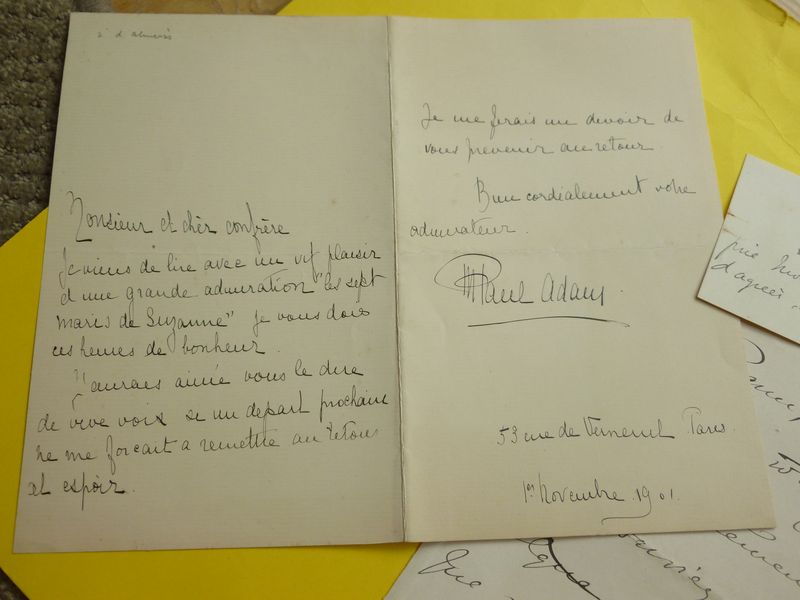 Monsieur et cher confrère
Je viens de lire avec un vif plaisir
et une grande admiration "les sept
maris de Suzanne" Je vous dois
ces heures de bonheur.
J'aurais aimé vous le dire
de vive voix si un départ prochain
ne me forçait a remettre au retour
cet espoir.
Je me ferais un devoir de
vous prevenir au retour.
Bien cordialement votre
admirateur.
Paul Adam
53 rue de Verneuil Paris.
1er Novembre 1901.
d'agréer
Que